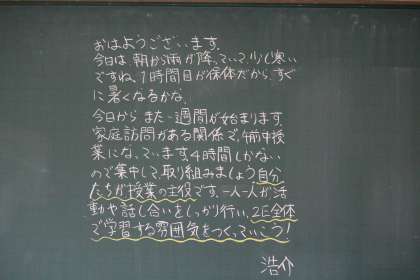 おはようございます。
今日は、朝から雨が降っていて、少し寒い
ですね。1時間目が保体だから、すぐ
に暑くなるかな。
今日からまた一週間が始まります
家庭訪問がある関係で、午前中授
業になっています。4時間しかない
ので集中して、取り組みましょう自分
たちが授業の主役です。一人一人が活
動や話し合いをしっかり行い、2E全体
で学習する雰囲気をつくっていこう!
浩介